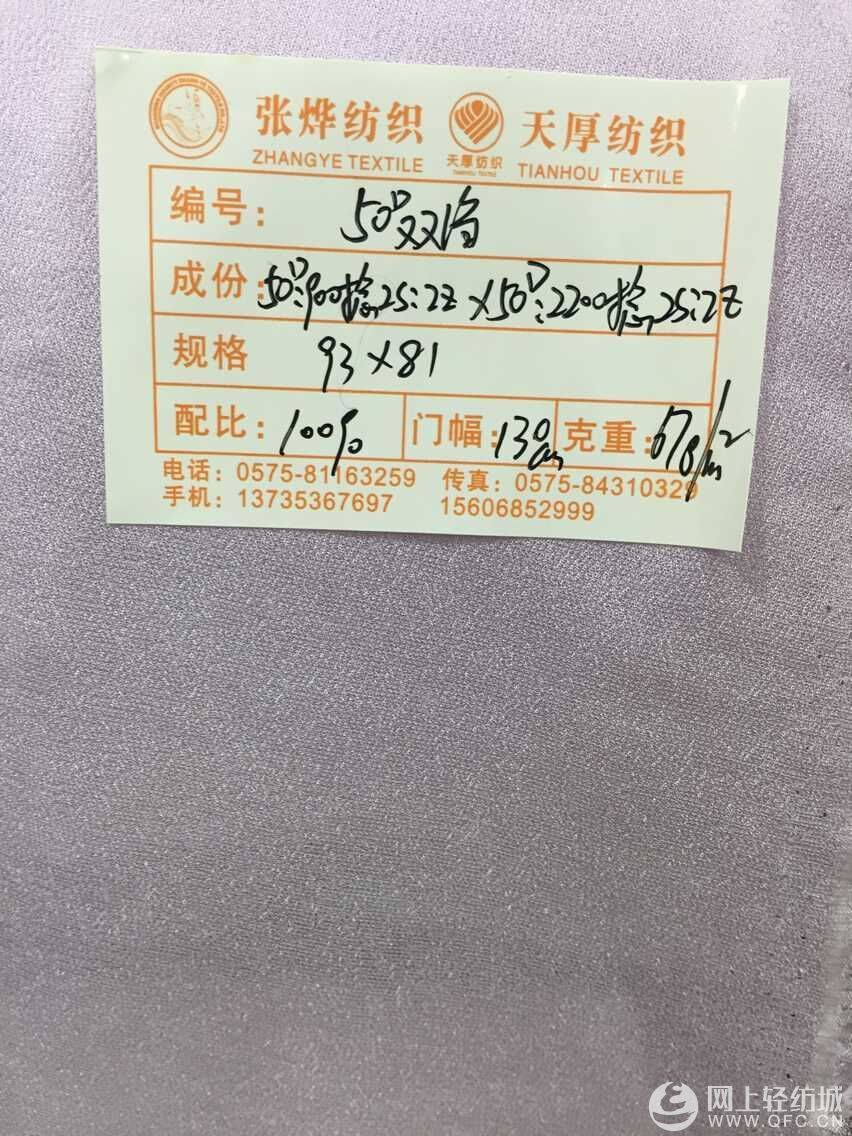 张烨纺织 天厚纺织 天厚纺织
ZHANGYE TEXTILE TIANHOU TEXTILE TIANHOU TEXTILE
编号: 50D双绉
成份: 50D:900捻,2S:2Z×50D:2200捻,2S:2Z
规格 93×81
配比: 100% 门幅: 130cm 克重: 67g/m²
电话: 0575-81163259 传真: 0575-84310329
手机: 13735367697 15606852999
网上轻纺城
WWW.QFC.CN